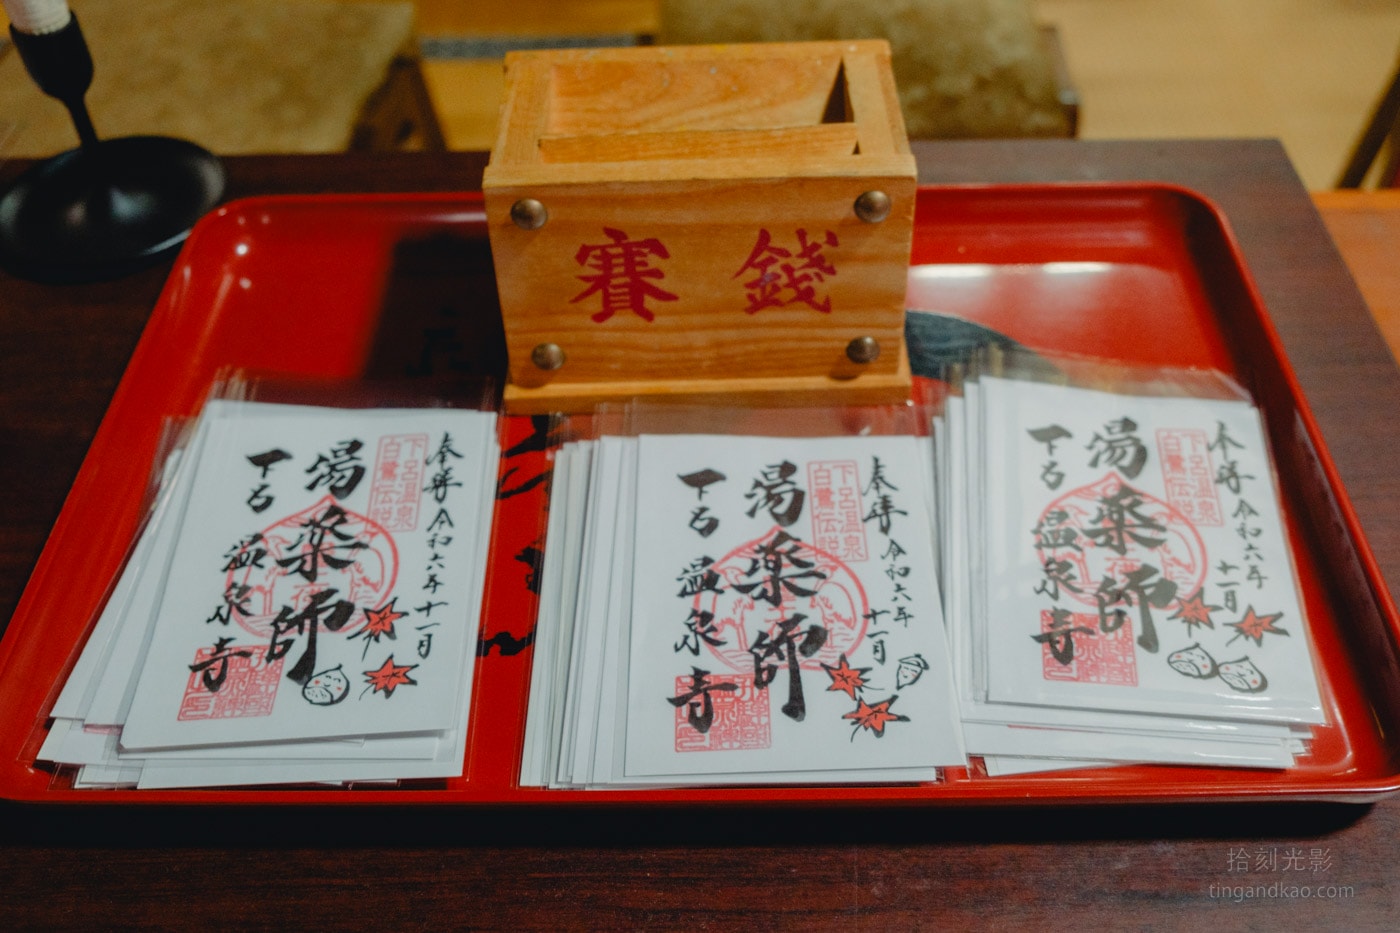 賽 錢
奉拝 令和六年 十一月
下呂温泉
白鷺伝説
湯薬師
下呂 温泉寺
奉拝 令和六年 十一月
下呂温泉
白鷺伝説
湯薬師
下呂 温泉寺
奉拝 令和六年 十一月
下呂温泉
白鷺伝説
湯薬師
下呂 温泉寺
拾刻光影
tingandkao.com